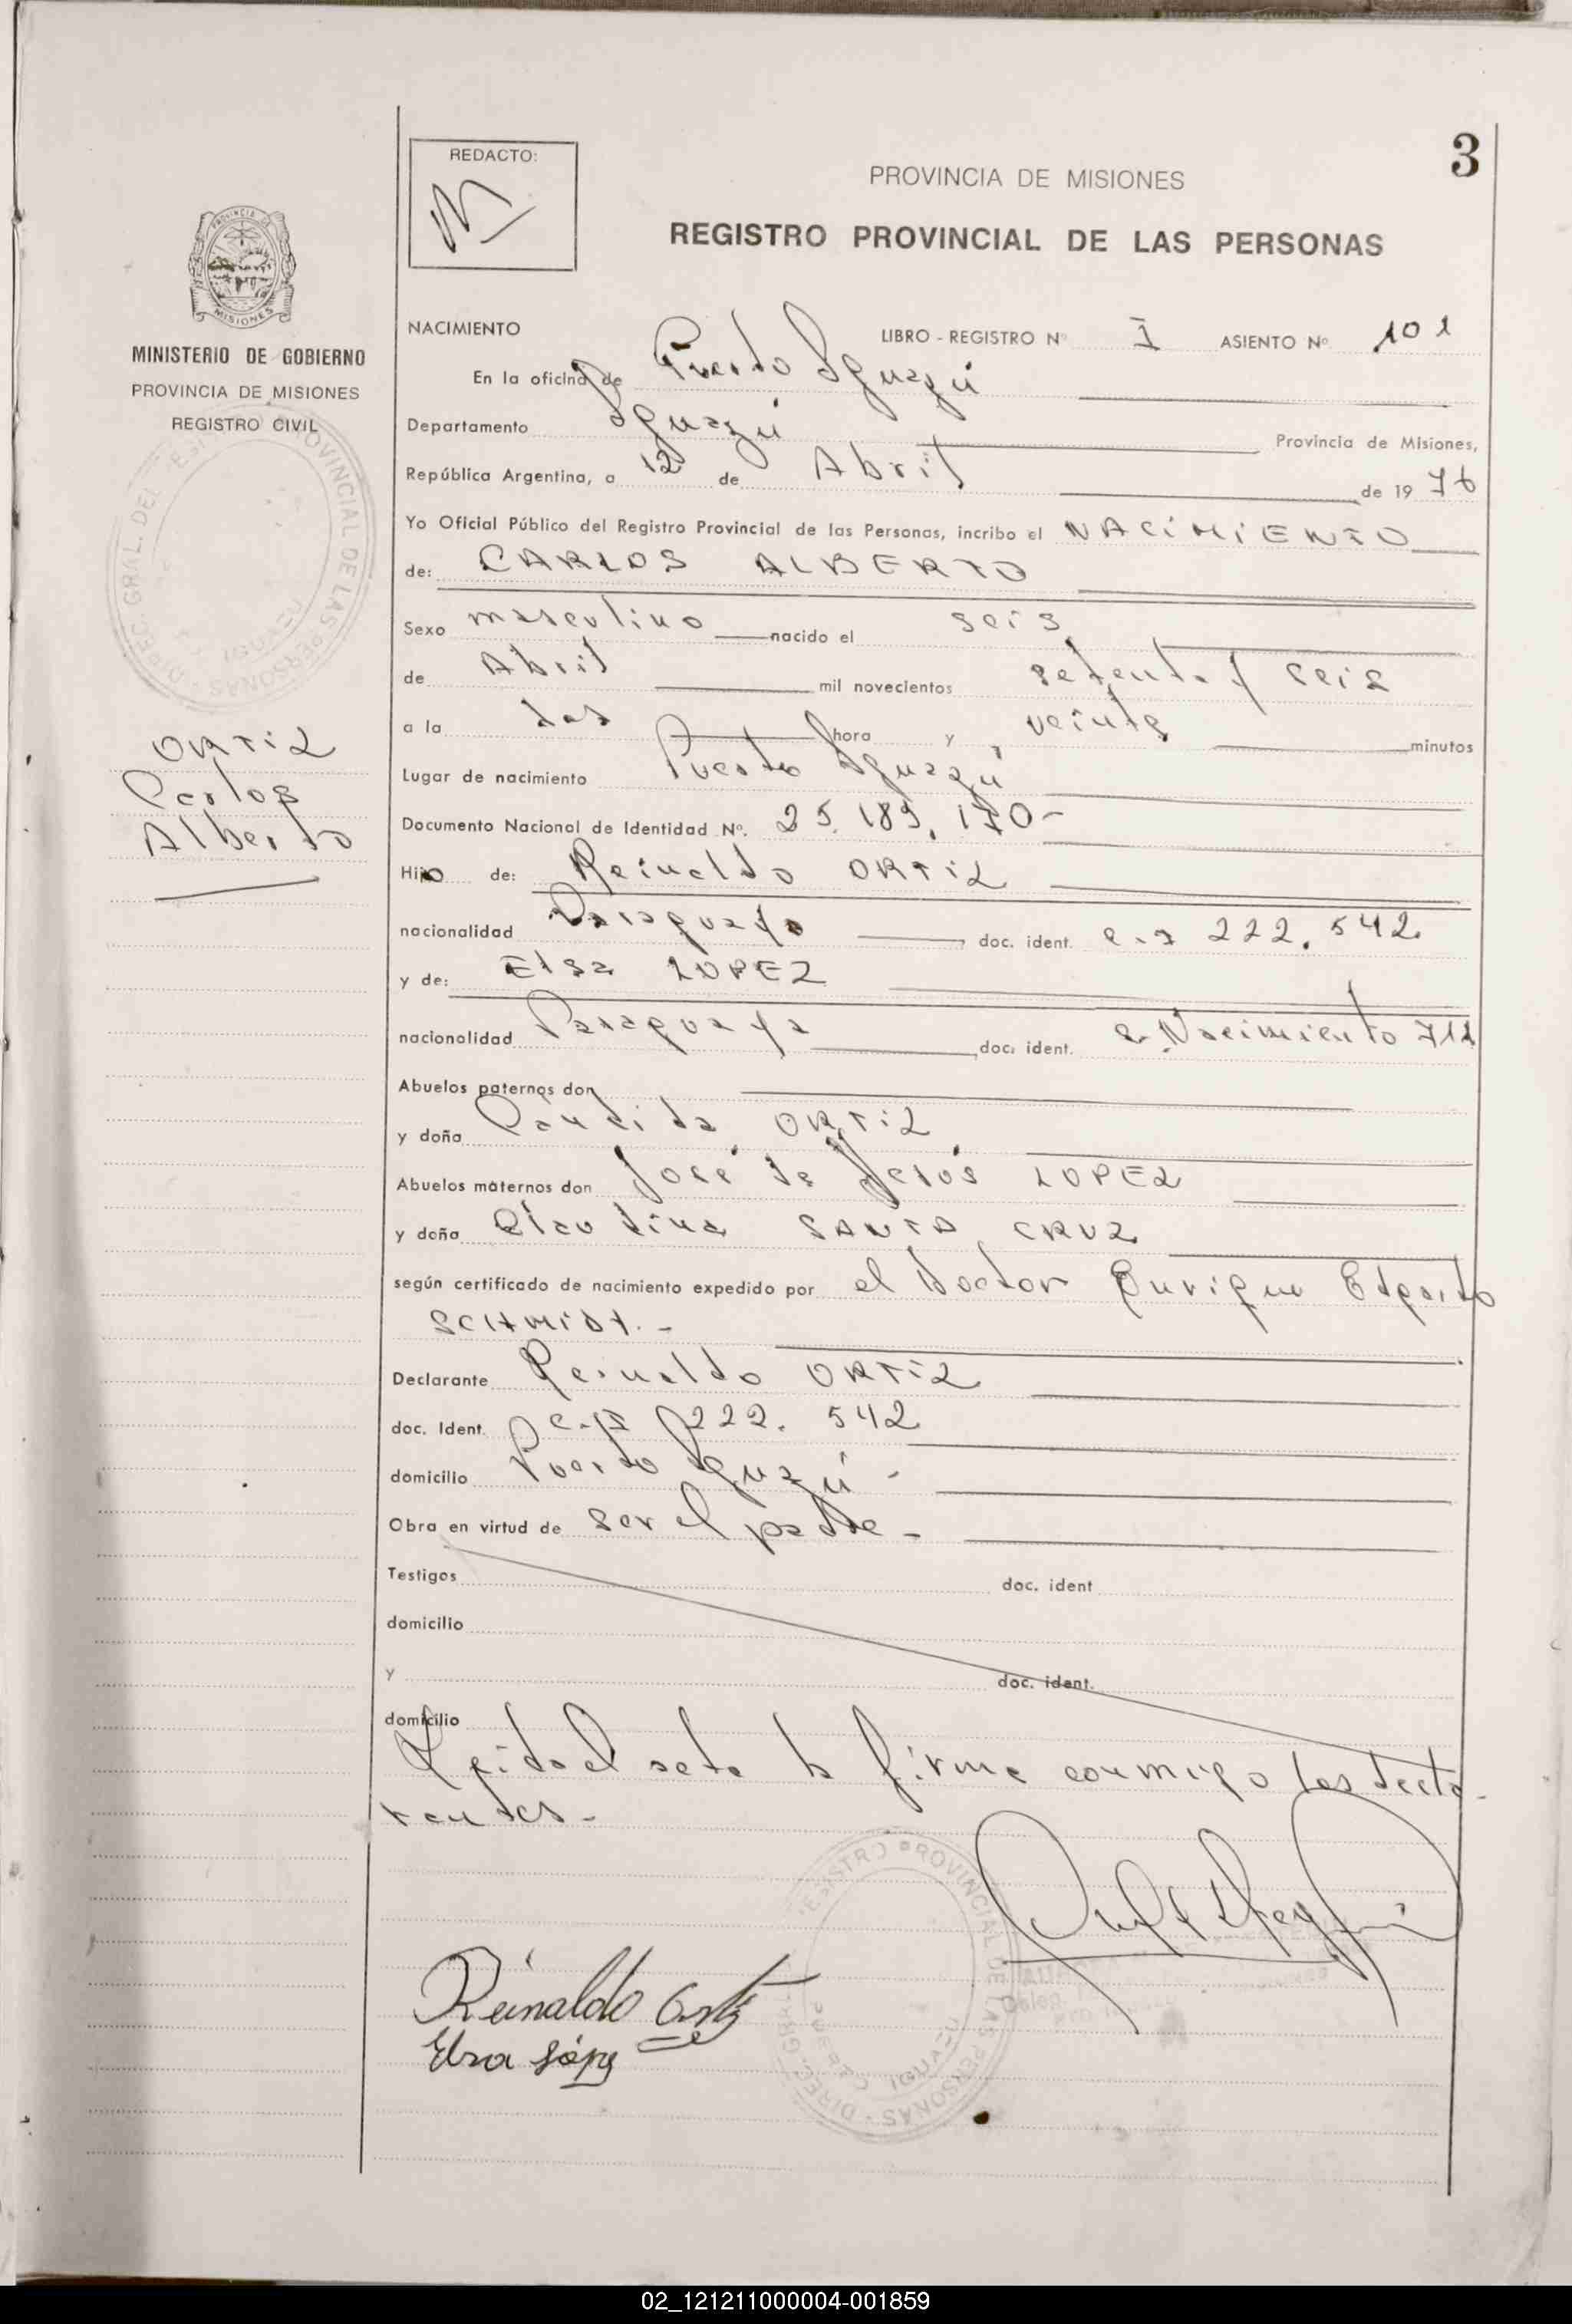 3
REDACTO:
PROVINCIA DE MISIONES
REGISTRO PROVINCIAL DE LAS PERSONAS
MISIONES
MINISTERIO DE GOBIERNO
PROVINCIA DE MISIONES
REGISTRO CIVIL
ORTiZ
Carlos
Alberto
NACIMIENTO LIBRO - REGISTRO Nº I ASIENTO Nº 101
En la oficina de Puerto Iguazú
Departamento Iguazú Provincia de Misiones,
República Argentina, a 12 de Abril de 19 76
Yo Oficial Público del Registro Provincial de las Personas, incribo el NACiMiENTO
de: CARLOS ALBERTO
Sexo masculino nacido el seis
de Abril mil novecientos setenta y seis
a la dos hora y veinte minutos
Lugar de nacimiento Puerto Iguazú
Documento Nacional de Identidad Nº. 25.189.170-
Hijo de: Reinaldo ORTiZ
nacionalidad Paraguayo doc. ident. 222.542
y de: Elsa LOPEZ
nacionalidad Paraguaya doc. ident. Nacimiento 711
Abuelos paternos don
y doña Cándida ORTiZ
Abuelos maternos don José de Jesús LOPEZ
y doña Claudina SANTA CRUZ
según certificado de nacimiento expedido por el Doctor Enrique Edgardo
SCHMiDT.-
Declarante Reinaldo ORTiZ
doc. Ident. 222.542
domicilio Puerto Iguazú -
Obra en virtud de ser el padre -
Testigos doc. ident
domicilio
y doc. ident.
domicilio
Leida el acta la firma conmigo los decla-
rantes-
Reinaldo Ortiz
Elsa López
REGISTRO PROVINCIAL DE LAS PERSONAS - DIREC. GRAL.
02_121211000004-001859